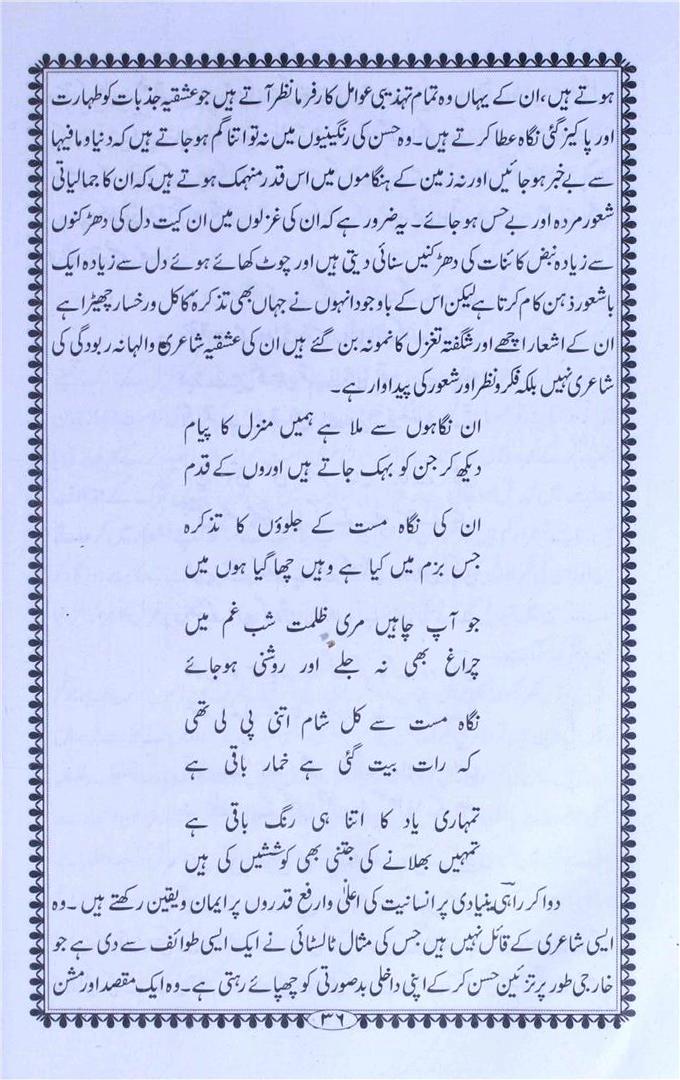 ہوتے ہیں، ان کے یہاں وہ تمام تہذیبی عوامل کارفرما نظر آتے ہیں جو عشقیہ جذبات کو طہارت
اور پاکیزگئی نگاہ عطا کرتے ہیں۔ وہ حسن کی رنگینیوں میں نہ تو اتنا گم ہوجاتے ہیں کہ دنیا و مافیہا
سے بے خبر ہوجائیں اور نہ زمین کے ہنگاموں میں اس قدر منہمک ہوتے ہیں کہ ان کا جمالیاتی
شعور مردہ اور بے حس ہوجائے۔ یہ ضرور ہے کہ ان کی غزلوں میں ان کیت دل کی دھڑکنوں
سے زیادہ نبض کائنات کی دھڑکنیں سنائی دیتی ہیں اور چوٹ کھائے ہوئے دل سے زیادہ ایک
باشعور ذہن کام کرتا ہے لیکن اس کے باوجود انہوں نے جہاں بھی تذکرۂ کاکل و رخسار چھیڑا ہے
ان کے اشعار اچھے اور شگفتہ تغزل کا نمونہ بن گئے ہیں ان کی عشقیہ شاعری والہانہ ربودگی کی
شاعری نہیں بلکہ فکر و نظر اور شعور کی پیداوار ہے۔
ان نگاہوں سے ملا ہے ہمیں منزل کا پیام
دیکھ کر جن کو بہک جاتے ہیں اوروں کے قدم
ان کی نگاہ مست کے جلوؤں کا تذکرہ
جس بزم میں کیا ہے وہیں چھا گیا ہوں میں
جو آپ چاہیں مری ظلمت شب غم میں
چراغ بھی نہ جلے اور روشنی ہوجائے
نگاہ مست سے کل شام اتنی پی لی تھی
کہ رات بیت گئی ہے خمار باقی ہے
تمہاری یاد کا اتنا ہی رنگ باقی ہے
تمہیں بھلانے کی جتنی بھی کوششیں کی ہیں
دواکر راہیؔ بنیادی پر انسانیت کی اعلیٰ وارفع قدروں پر ایمان ویقین رکھتے ہیں۔ وہ
ایسی شاعری کے قائل نہیں ہیں جس کی مثال ٹالسٹائی نے ایک ایسی طوائف سے دی ہے جو
خارجی طور پر تزئین حسن کرکے اپنی داخلی بدصورتی کو چھپائے رہتی ہے۔ وہ ایک مقصد اور مشن
۳۶